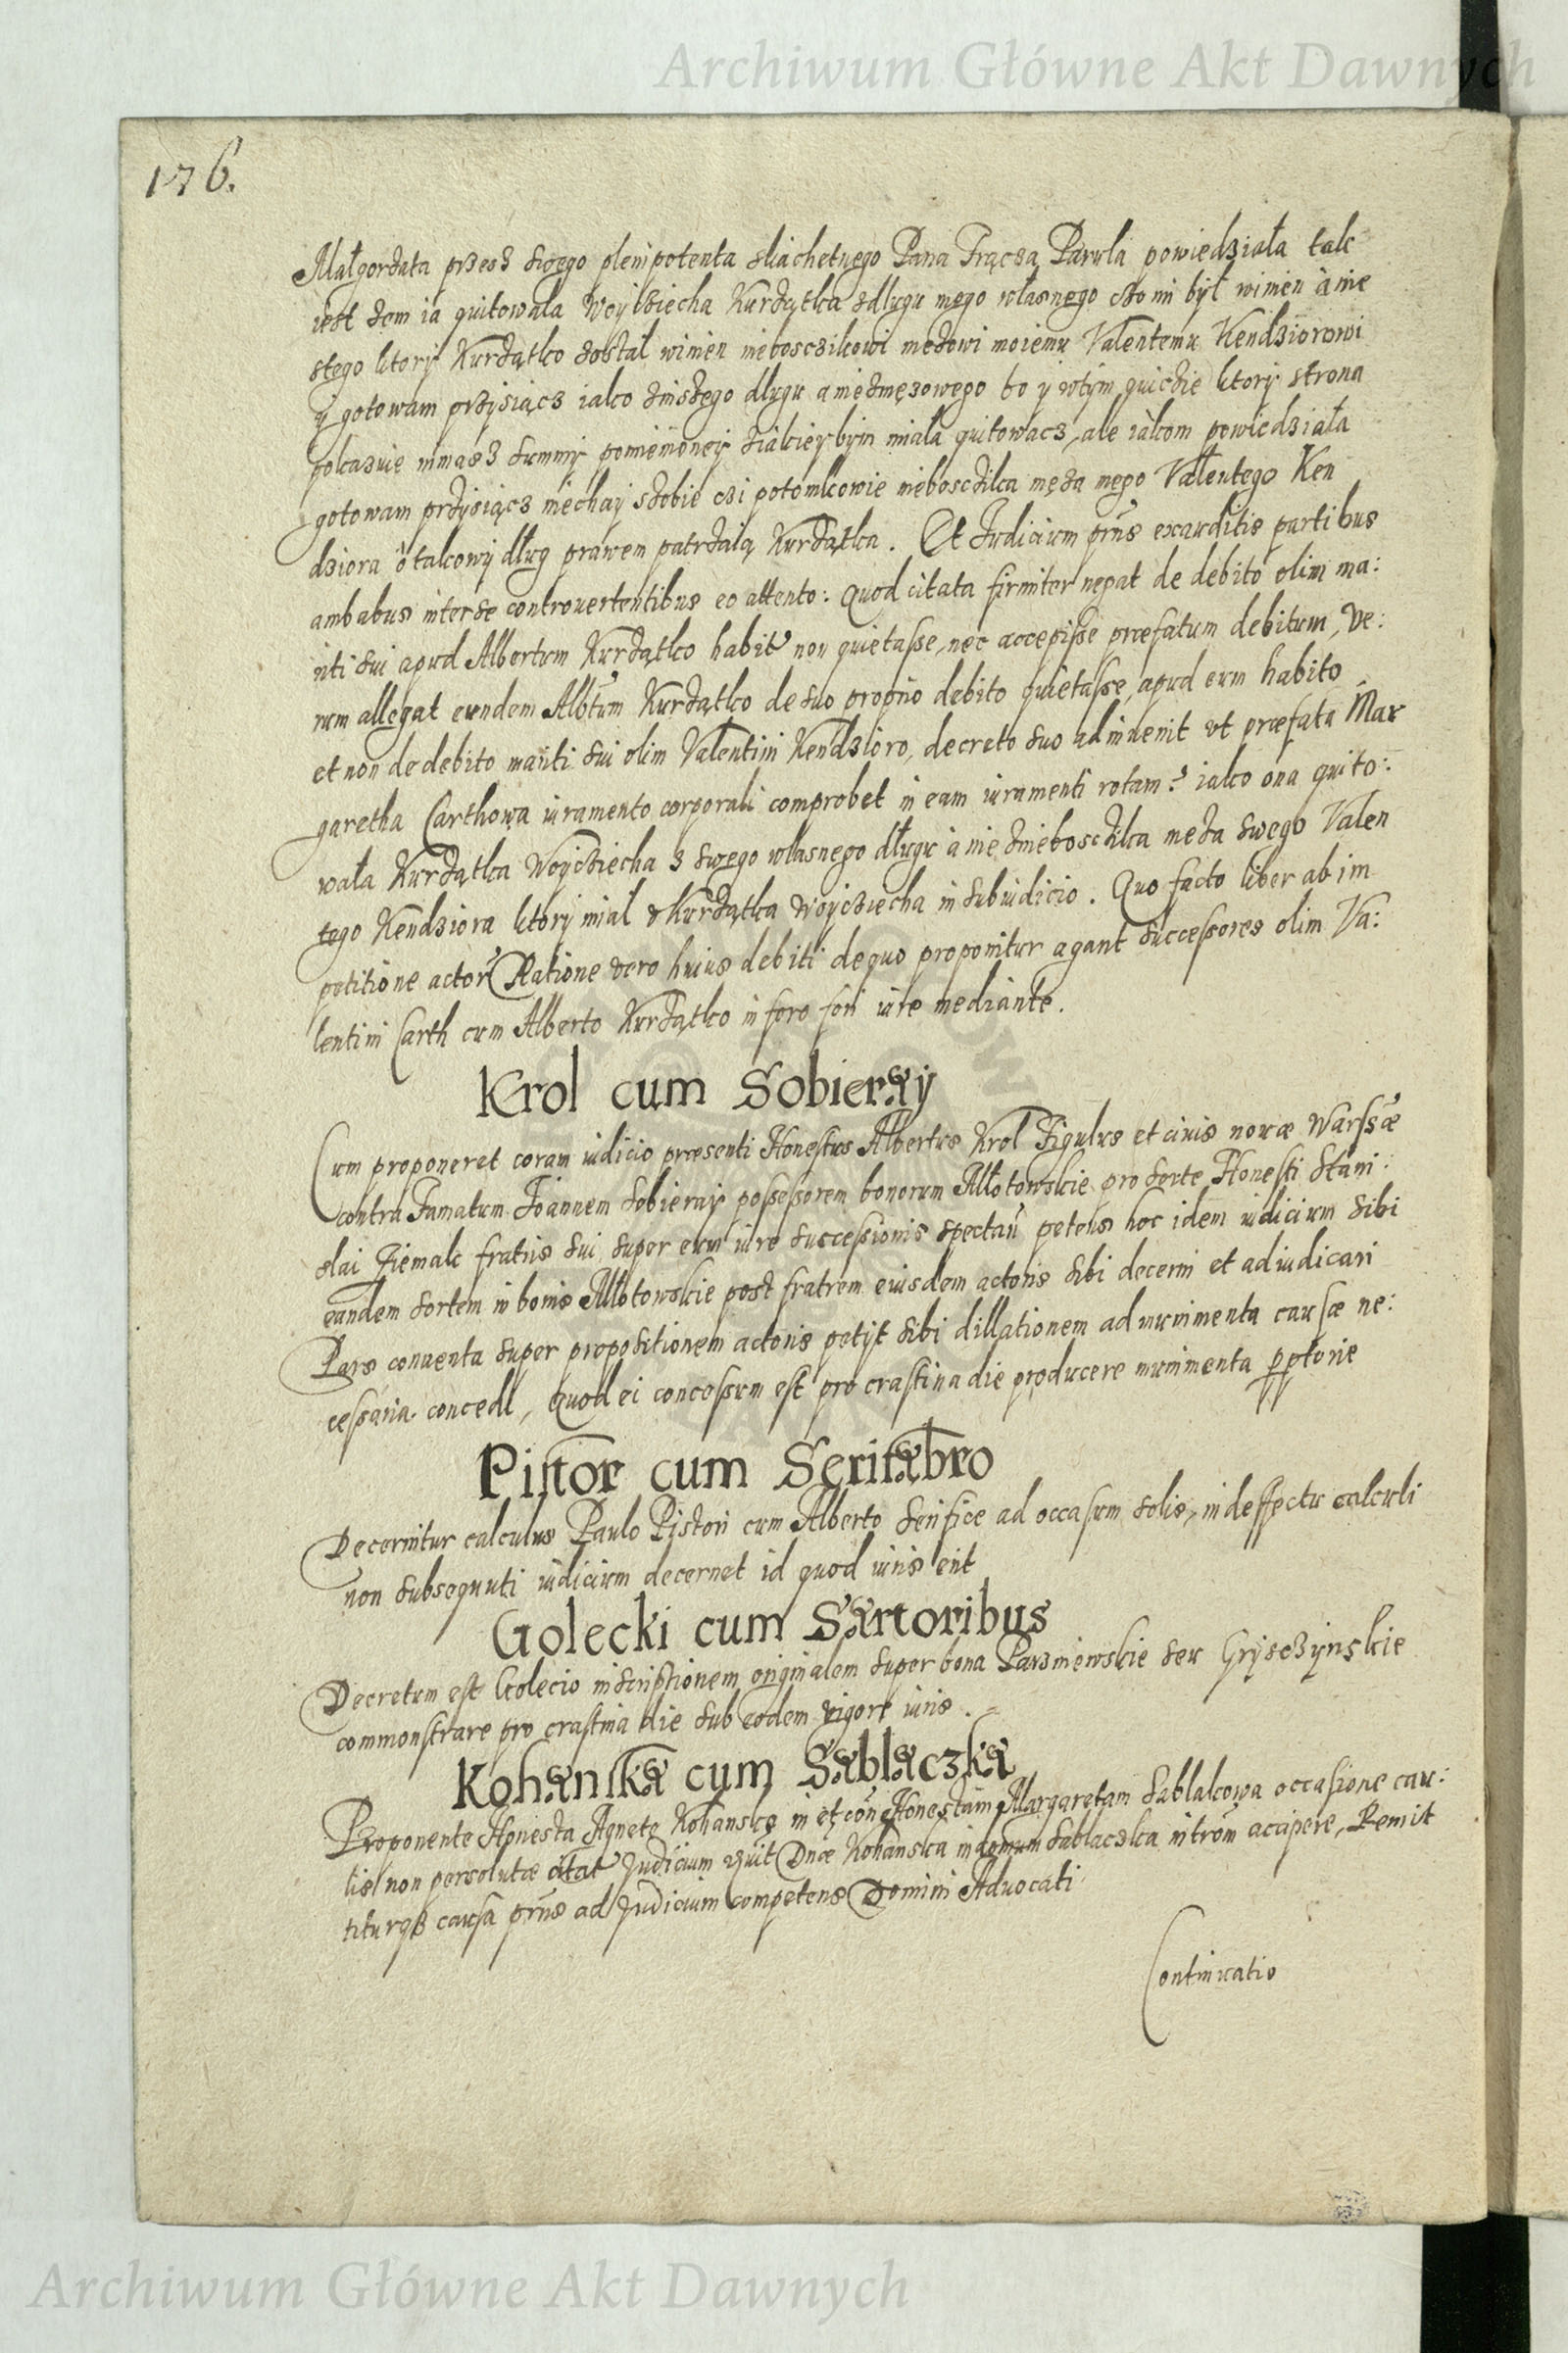 Archiwum Główne Akt Dawnych
176.
Małgorzata przesz swego plenipotenta sliachetnego Pana Frącza Pawla powiedziała tak
iest zem ia quitowala Woyciecha Kurdątka zdlugu mego własnego czo mi był winien a nie
stego ktory Kurdątko został winien nieboszcikowi męzowi moiemu Valentemu Kendziorowi
y gotowam przysiącz iako zinszego dlugu a nie zmęzowego bo y wtym quiczie ktory strona
pokazuie nimasz summy pomienioney ziakieybym miała quitowacz, ale iakom powiedziała
gotowam przysiącz niechay szobie czi potomkowie nieboszczika męża mego Valentego Ken
dziora o takowy dług prawem patrzaią Kurdątka. Et Judicium prns exauditis partibus
ambabus inter se controuertentibus eo attento: Quod citata firmiter negat de debito olim ma:
riti sui apud Albertum Kurdątko habit non quietasse, nec accepisse præfatum debitum, Ve:
rum allegat eundem Albtum Kurdątko de suo proprio debito quietasse, apud eum habito
et non de debito mariti sui olim Valentini Kendzioro, decreto suo adinuenit vt præfata Mar
garetha Carthowa iuramento corporali comprobet in eam iuramenti rotam: iako ona quito:
wała Kurdątka Woyciecha z swego własnego długu a nie znieboszczika męża swego Valen
tego Kendziora ktory mial v Kurdątka Woyciecha in subiudicio. Quo facto liber ab im
petitione actor Ratione vero huius debiti de quo proponitur agant successores olim Va:
lentini Carth cum Alberto Kurdątko in foro fori iure mediante.
Krol cum Sobieray
Cum proponeret coram iudicio præsenti Honestus Albertus Krol Figulus et ciuis nouæ Warssæ
contra Famatum Joannem Sobieray possessorem bonorum Młotowskie pro sorte Honesti Stani:
slai Ziemak fratris sui super eum iure successionis spectan petens hoc idem iudicium sibi
eandem sortem in bonis Młotowskie post fratrem eiusdem actoris sibi decerni et adiudicari
Pars conuenta super propositionem actoris petijt sibi dillationem ad munimenta causæ ne:
cessaria concedi, Quod ei concessum est pro crastina die producere munimenta pptorie
Pistor cum Scrifabro
Decernitur calculus Paulo Pistori cum Alberto Serifice ad occasum solis, in deffectu calculi
non subsequuti iudicium decernet id quod iuris erit
Golecki cum Sartoribus
Decretum est Golecio inscriptionem originalem super bona Parzniewskie seu Gryseżynskie
commonstrare pro crastina die sub eodem rigore iuris.
Kohanska cum Sablaczka
Proponente Honesta Agnete Kohanska in et con Honestam Margaretam Sablakowa occasione cau:
lis non persolutæ citat Judicium Dnæ Kohanska in domum Sablaczka introm accipere, Remit
titurqs causa prns ad Judicium competens Domini Aduocati
Continuatio
Archiwum Główne Akt Dawnych